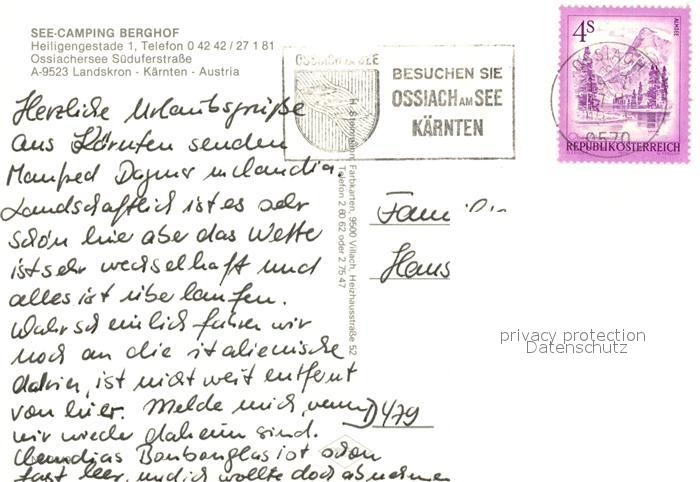 SEE-CAMPING BERGHOF
Heiligengestade 1, Telefon 0 42 42 / 27 1 81
Ossiachersee Süduferstraße
A-9523 Landskron - Kärnten - Austria
Herzliche Urlaubsgrüße
aus Kärnten senden
Manfred Dagmar u. claudia.
Landschaftlich ist es sehr
schön hier aber das Wetter
ist sehr wechselhaft und
alles ist überlaufen.
Wahrscheinlich fahren wir
noch an die italienische
dahin, ist nicht weit entfernt
von hier. Melde mich, wenn
wir wieder daheim sind.
Claudias Bonbonglas ist schon
fast leer, und ich wollte doch abnehmen
OSSIACH AM SEE
BESUCHEN SIE
OSSIACH AM SEE
KÄRNTEN
4S
ALMSEE
OSSIACH
9570
REPUBLIK ÖSTERREICH
Farbkarten, 9500 Villach, Heizhausstraße 52
Telefon 2 60 62 oder 2 75 47
Familie
Hans
D 479
privacy protection
Datenschutz